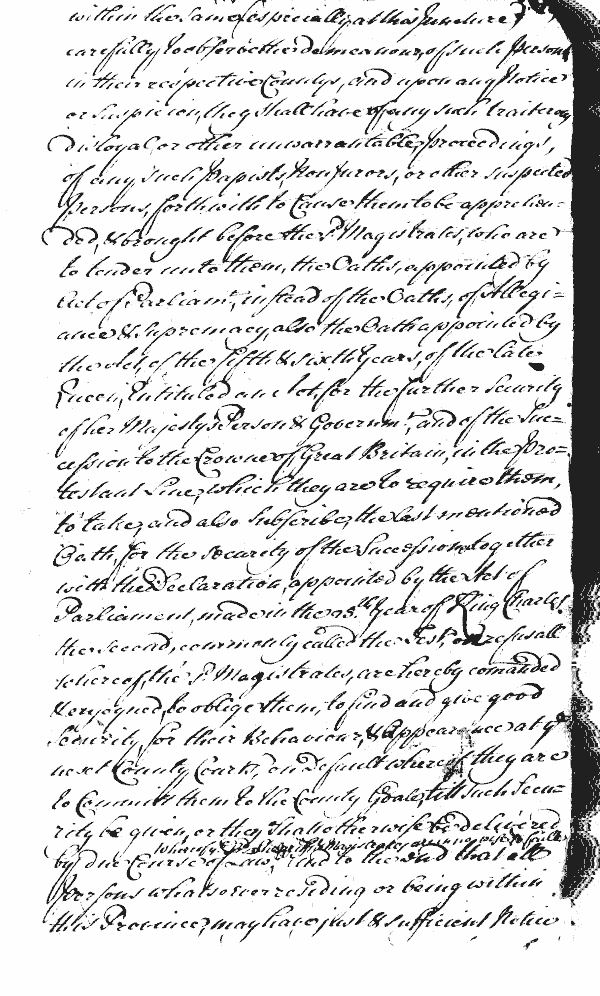 within the same (especially at this juncture)
carefully to observe the demeanour, of such persons
in their respective Countys, and upon any Notice
or suspicion, they shall have of any such traiterous
disloyal or other unwarrantable proceedings,
of any such Papists, Nonjurors, or other suspected
Persons, forthwith to Cause them to be apprehen=
ded, & brought before the sd. Magistrates, who are
to tender unto them, the Oaths, appointed by
Act of Parliamt., instead of the Oaths, of Allegi=
ance & Supremacy, also the Oath appointed by
the Act, of the fifth & sixth Years, of the late
Queen, Entituled an Act, for the further Security
of her Majestys Person & Governmt., and of the Suc=
cession to the Crowne of Great Britain, in the Pro=
testant Line, which they are to require them,
to take, and also Subscribe, the last mentioned
Oath, for the security of the Succession, together
with the Declaration, appointed by the Act of
Parliament, made in the 25th. Year of King Charles
the Second, commonly called the Test, on refusall
whereof the sd. Magistrates, are hereby comanded
& enjoyned, to oblige them, to find and give good
Security, for their Behaviour, & appearance at ye
next County Courts, on Default whereof they are
to Committ them to the County Goale, till such Secu=
rity be given, or they shall otherwise be delivered
whereof the sd. Magistrates are in no wise to faile
by due Course of Law, And to the end that all
Persons whatsoever residing or being within
this Province, may have just & sufficient Notice